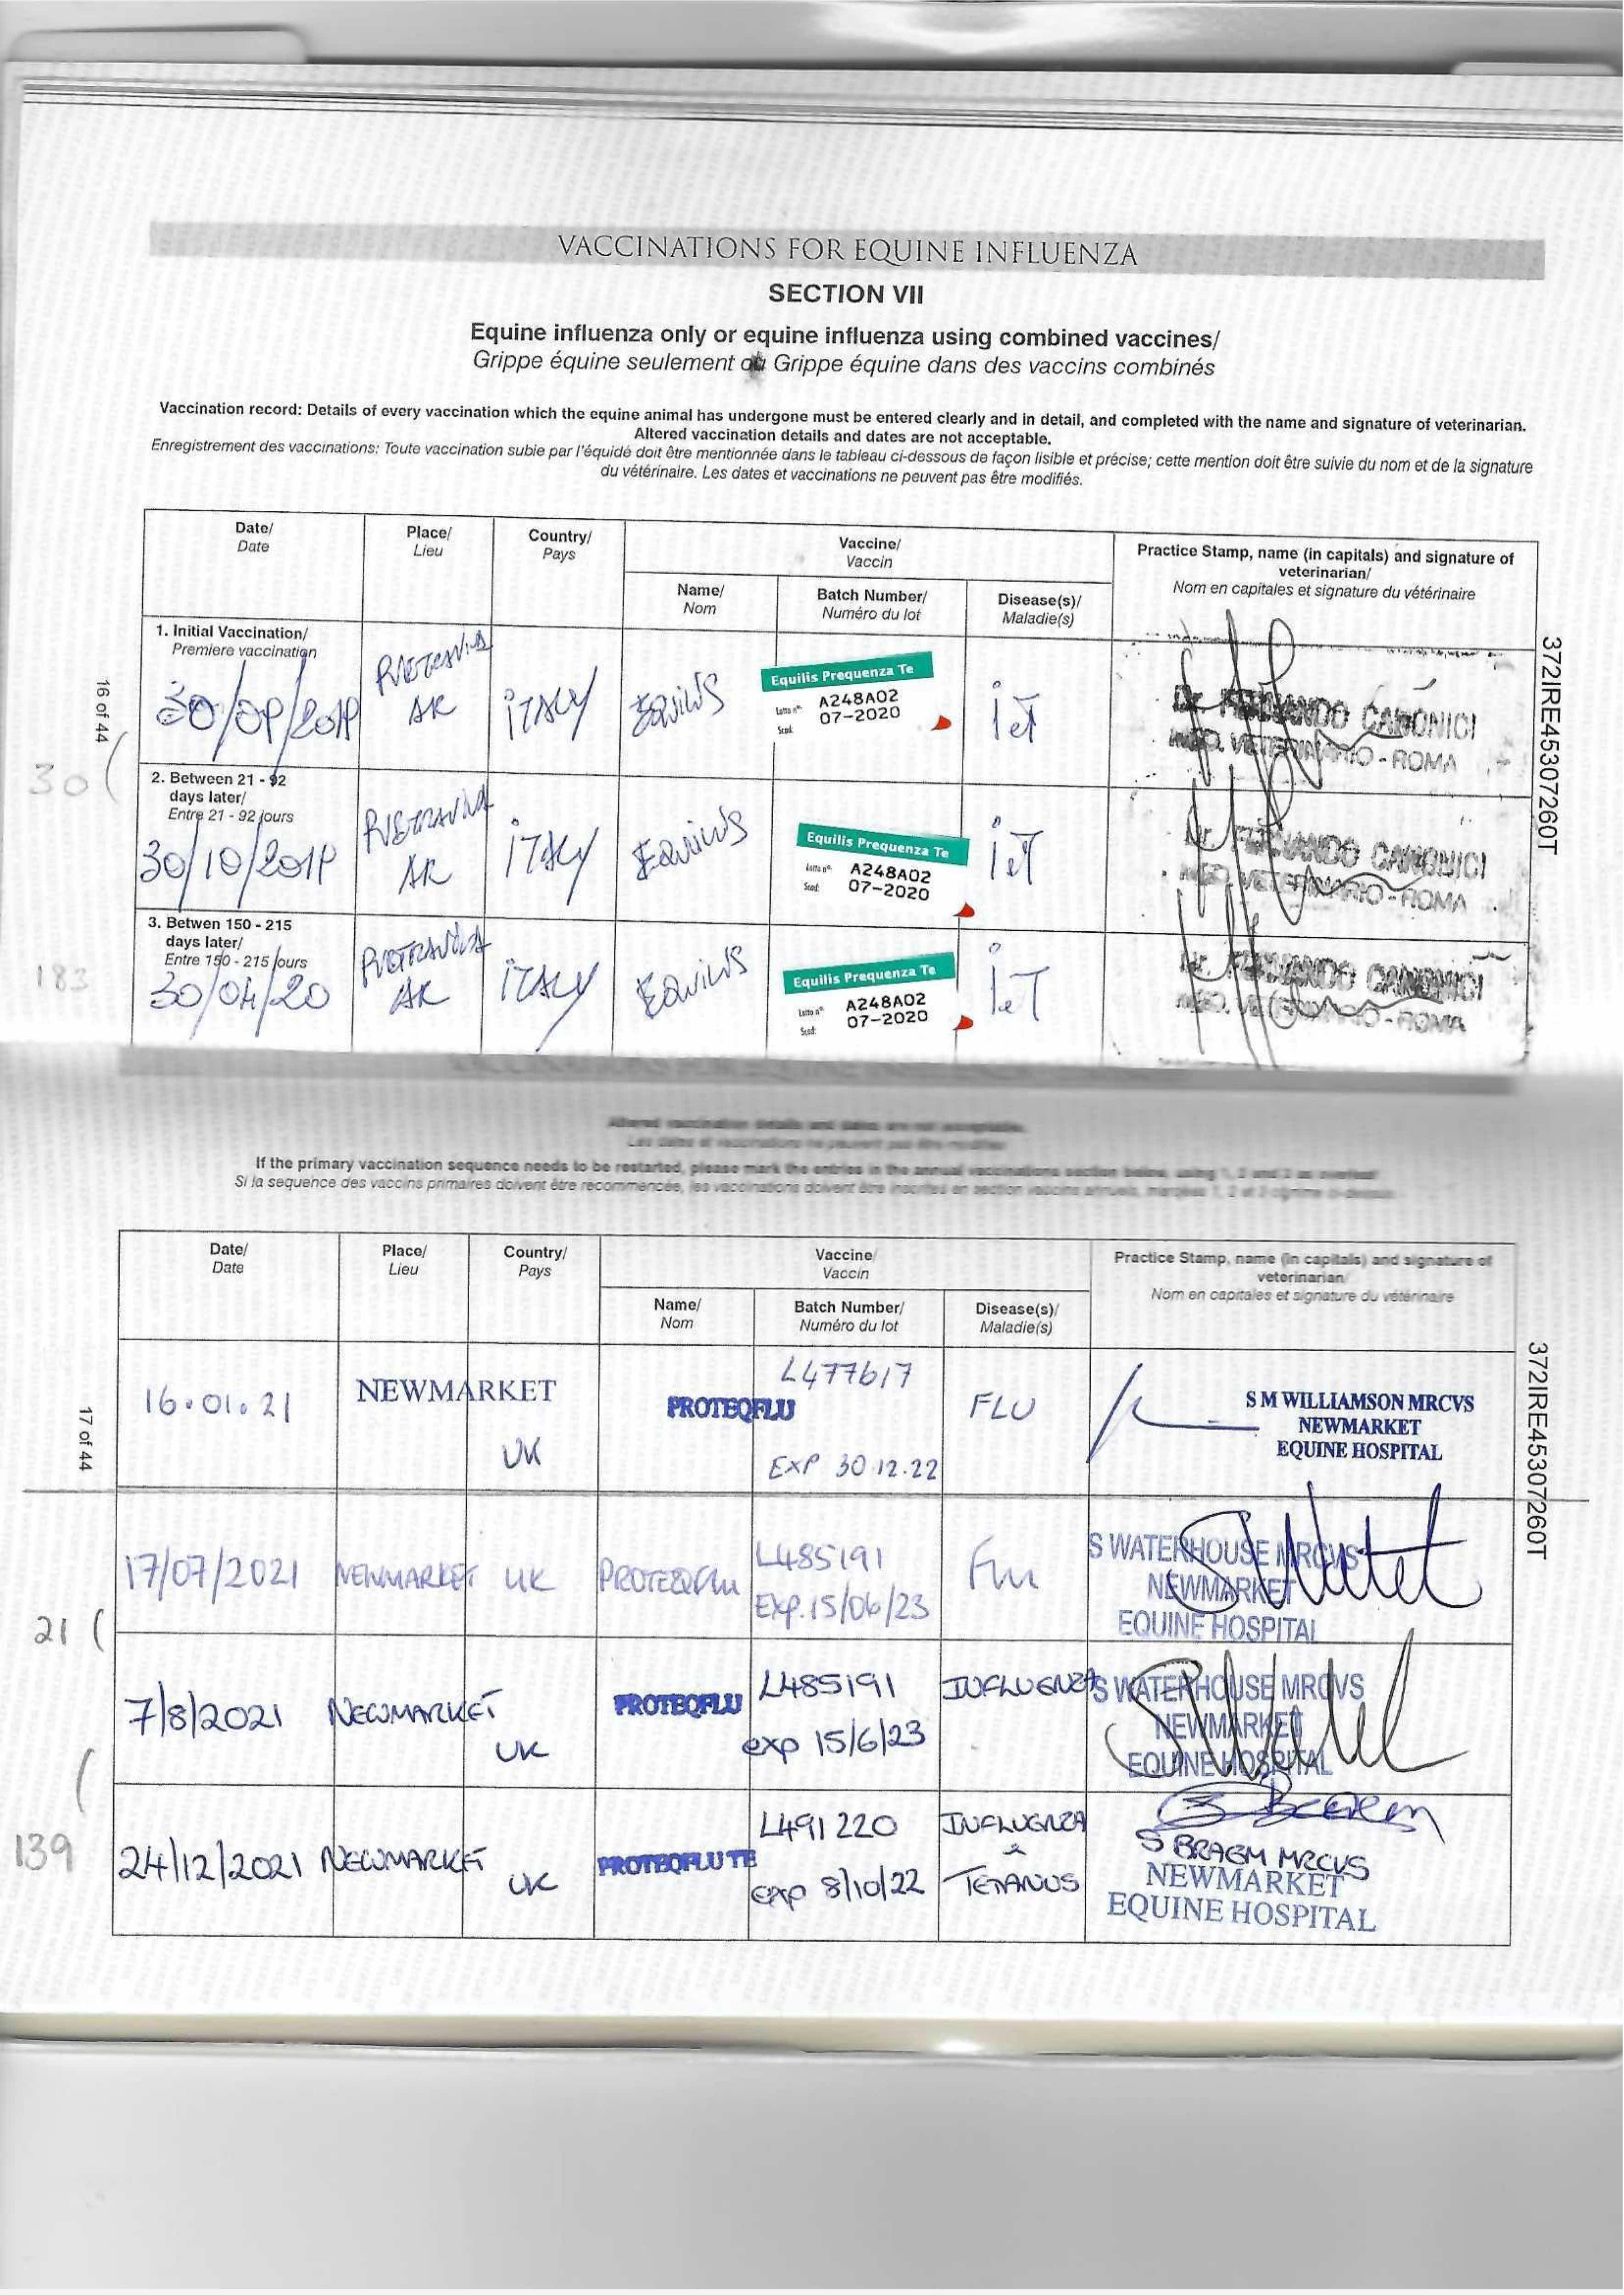 VACCINATIONS FOR EQUINE INFLUENZA
SECTION VII
Equine influenza only or equine influenza using combined vaccines/
Grippe équine seulement ou Grippe équine dans des vaccins combinés
Vaccination record: Details of every vaccination which the equine animal has undergone must be entered clearly and in detail, and completed with the name and signature of veterinarian.
Altered vaccination details and dates are not acceptable.
Enregistrement des vaccinations: Toute vaccination subie par l'équidé doit être mentionnée dans le tableau ci-dessous de façon lisible et précise; cette mention doit être suivie du nom et de la signature
du vétérinaire. Les dates et vaccinations ne peuvent pas être modifiés.
Date/
Date
Place/
Lieu
Country/
Pays
Vaccine/
Vaccin
Name/
Nom
Batch Number/
Numéro du lot
Disease(s)/
Maladie(s)
Practice Stamp, name (in capitals) and signature of
veterinarian/
Nom en capitales et signature du vétérinaire
1. Initial Vaccination/
Premiere vaccination
AR
ITALY
EQUILIS
Equilis Prequenza Te
Lotto n°
A248A02
Scad.
07-2020
IET
Dr. FERNANDO CANONICI
MED. VETERINARIO - ROMA
30
2. Between 21 - 92
days later/
Entre 21 - 92 jours
30/10/2019
AR
ITALY
EQUILIS
Equilis Prequenza Te
Lotto n°
A248A02
Scad:
07-2020
IET
Dr. FERNANDO CANONICI
MED. VETERINARIO - ROMA
3. Betwen 150 - 215
days later/
Entre 150 - 215 jours
183
30/04/20
AR
ITALY
EQUILIS
Equilis Prequenza Te
Lotto n°
A248A02
Scad:
07-2020
IET
Dr. FERNANDO CANONICI
MED. VETERINARIO - ROMA
16 of 44
372IRE45307260T
Altered vaccination details and dates are not acceptable.
Les dates et vaccinations ne peuvent pas être modifiés
If the primary vaccination sequence needs to be restarted, please mark the entries in the annual vaccinations section below, using 1, 2 and 3 as overleaf
Si la sequence des vaccins primaires doivent être recommencée, les vaccinations doivent être inscrites en section vaccins annuels, marquées 1, 2 et 3 comme ci-dessus
Date/
Date
Place/
Lieu
Country/
Pays
Vaccine/
Vaccin
Name/
Nom
Batch Number/
Numéro du lot
Disease(s)/
Maladie(s)
Practice Stamp, name (in capitals) and signature of
veterinarian/
Nom en capitales et signature du vétérinaire
16.01.21
NEWMARKET
UK
PROTEQFLU
L477617
EXP 30.12.22
FLU
S M WILLIAMSON MRCVS
NEWMARKET
EQUINE HOSPITAL
17/07/2021
NEWMARKET
UK
PROTEQFLU
L485191
Exp. 15/06/23
Flu
S WATERHOUSE MRCVS
NEWMARKET
EQUINE HOSPITAL
21
7/8/2021
NEWMARKET
UK
PROTEQFLU
L485191
exp 15/6/23
INFLUENZA
S WATERHOUSE MRCVS
NEWMARKET
EQUINE HOSPITAL
139
24/12/2021
NEWMARKET
UK
PROTEQFLU TE
L491220
exp 8/10/22
INFLUENZA
&
TETANUS
MRCVS
NEWMARKET
EQUINE HOSPITAL
17 of 44
372IRE45307260T